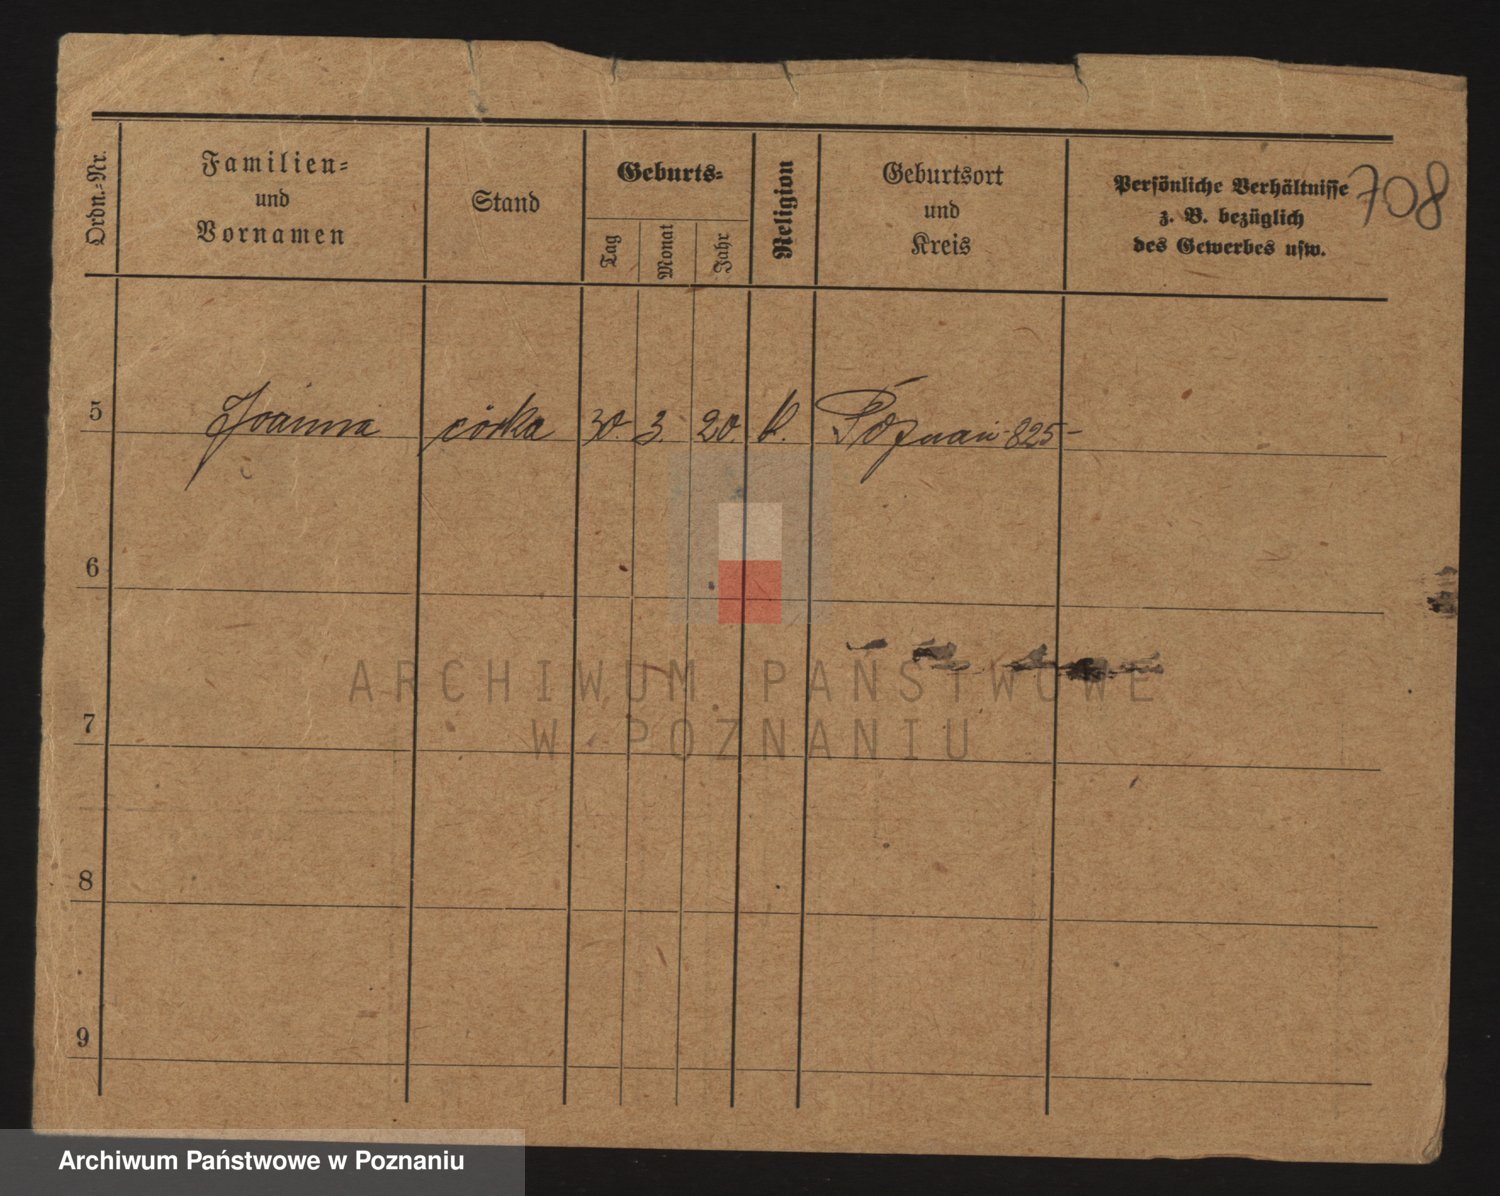 708
Ordn.-Nr.
Familien-
und
Vornamen
Stand
Geburts-
Tag
Monat
Jahr
Religion
Geburtsort
und
Kreis
Persönliche Verhältnisse
z. B. bezüglich
des Gewerbes usw.
5 Joanna córka 30. 3. 20. k. Poznań -825-
6
7
8
9
ARCHIWUM PAŃSTWOWE
W POZNANIU
Archiwum Państwowe w Poznaniu